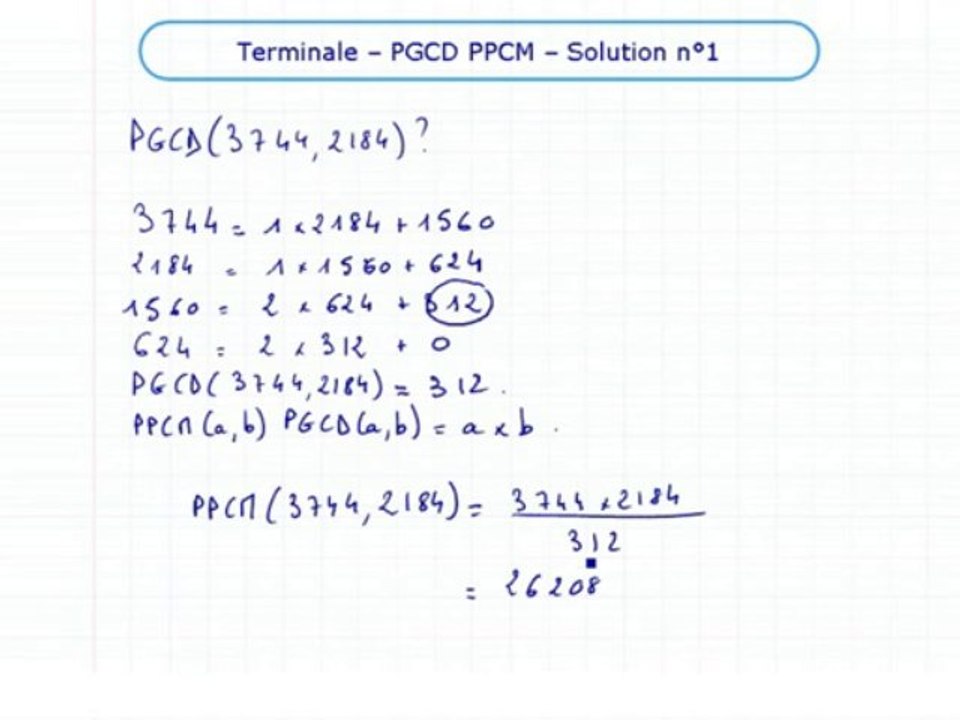 Terminale – PGCD PPCM – Solution n°1
PGCD(3744, 2184) ?
3744 = 1 × 2184 + 1560
2184 = 1 × 1560 + 624
1560 = 2 × 624 + 312
624 = 2 × 312 + 0
PGCD(3744, 2184) = 312.
PPCM(a,b) PGCD(a,b) = a × b.
PPCM(3744, 2184) = 3744 × 2184
312
= 26208